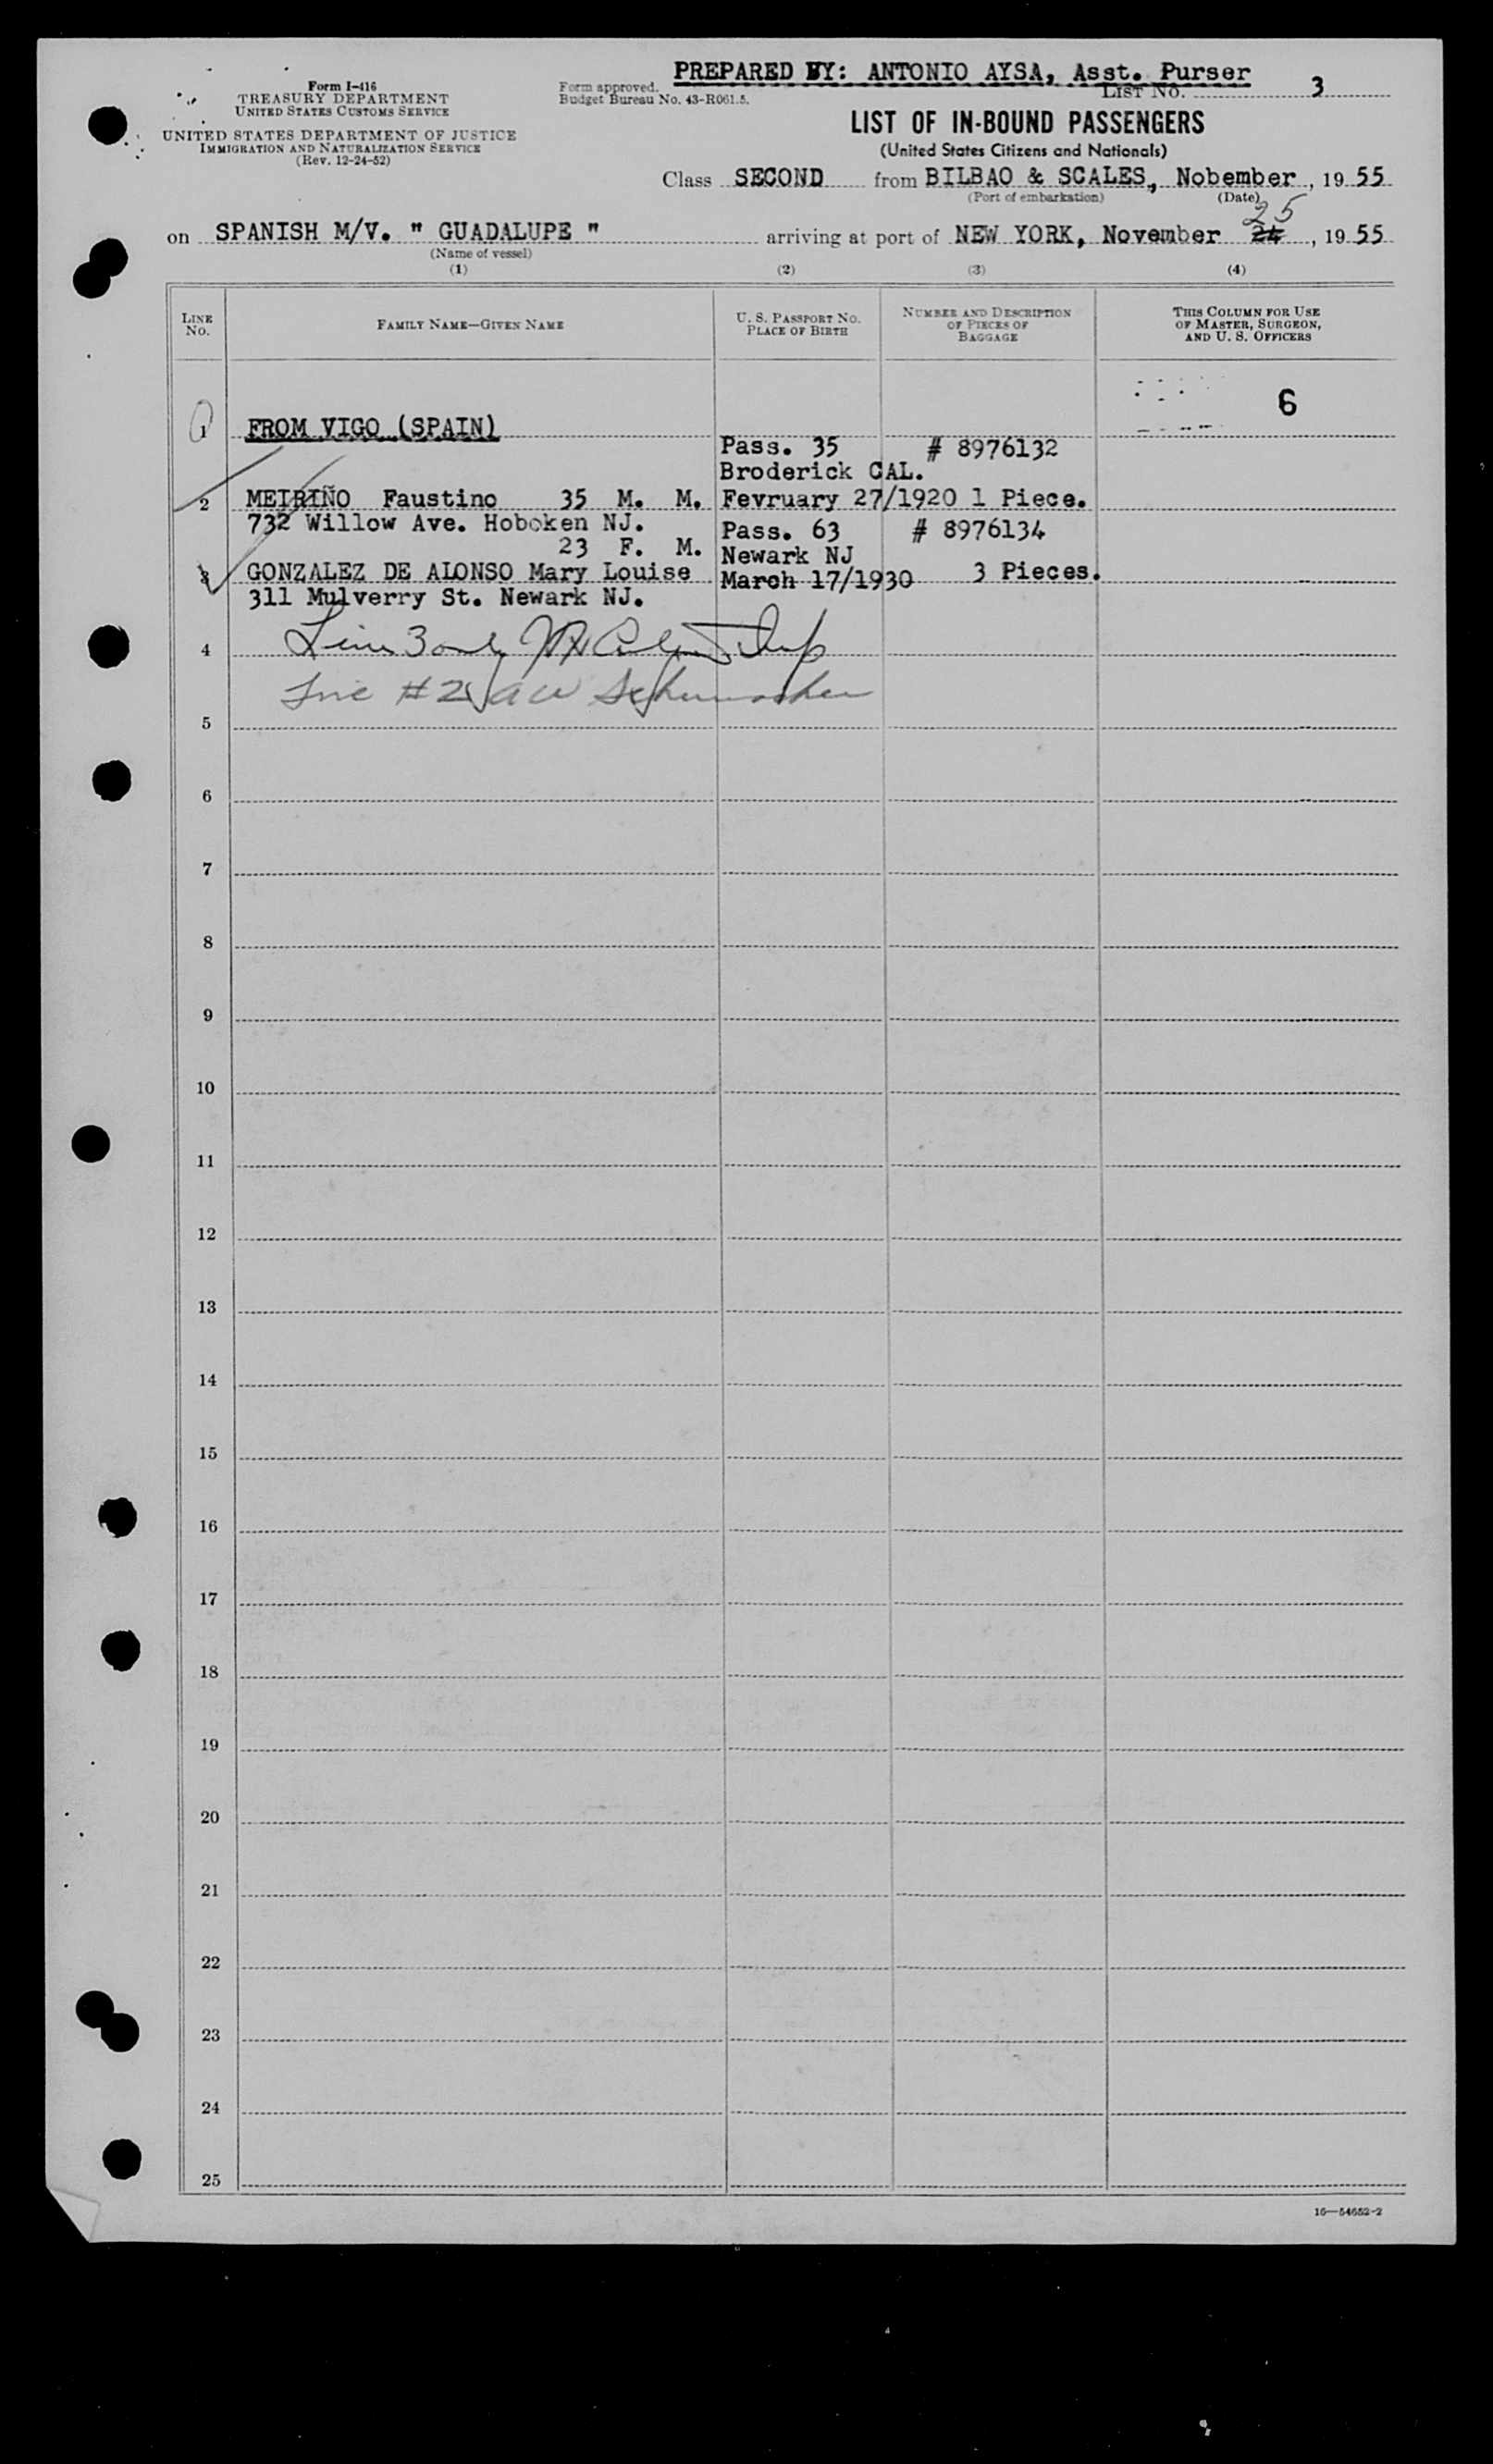 PREPARED BY: ANTONIO AYSA, Asst. Purser
Form I-416
TREASURY DEPARTMENT
UNITED STATES CUSTOMS SERVICE
UNITED STATES DEPARTMENT OF JUSTICE
IMMIGRATION AND NATURALIZATION SERVICE
(Rev. 12-24-52)
Form approved.
Budget Bureau No. 43-R061.5.
LIST NO. 3
LIST OF IN-BOUND PASSENGERS
(United States Citizens and Nationals)
Class SECOND from BILBAO & SCALES, Nobember, 19 55
(Port of embarkation) (Date)
on SPANISH M/V. " GUADALUPE " arriving at port of NEW YORK, November 24 25, 19 55
(Name of vessel)
(1) (2) (3) (4)
LINE NO.
FAMILY NAME—GIVEN NAME
U. S. PASSPORT NO.
PLACE OF BIRTH
NUMBER AND DESCRIPTION
OF PIECES OF
BAGGAGE
THIS COLUMN FOR USE
OF MASTER, SURGEON,
AND U. S. OFFICERS
6
1 FROM VIGO (SPAIN)
Pass. 35 # 8976132
Broderick CAL.
2 MEIRIÑO Faustino 35 M. M. Fevruary 27/1920 1 Piece.
732 Willow Ave. Hoboken NJ.
Pass. 63 # 8976134
23 F. M. Newark NJ
3 GONZALEZ DE ALONSO Mary Louise March 17/1930 3 Pieces.
311 Mulverry St. Newark NJ.
4 Line 3 only
Line #2
5
6
7
8
9
10
11
12
13
14
15
16
17
18
19
20
21
22
23
24
25
16—54652-2